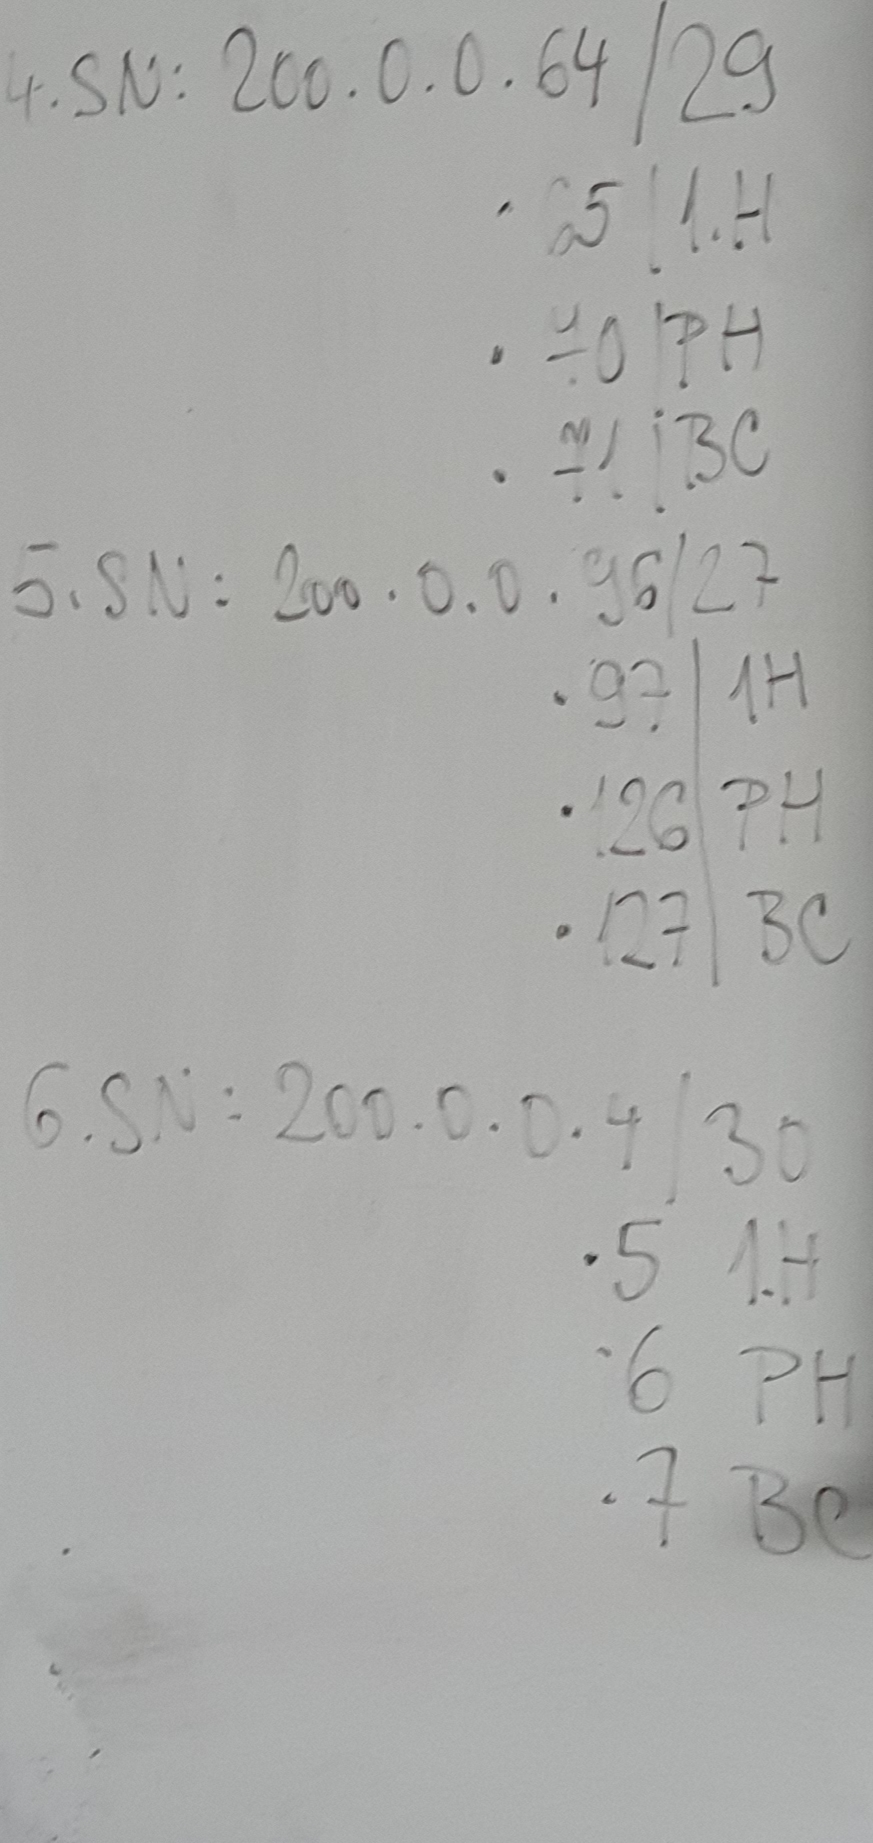 4.SN: 200.0.0.64/29
.65|1.H
.70|PH
.71|BC
5.SN: 200.0.0.96/27
.97|1H
.126|PH
.127|BC
6.SN: 200.0.0.4/30
.5 1.H
.6 PH
.7 BC